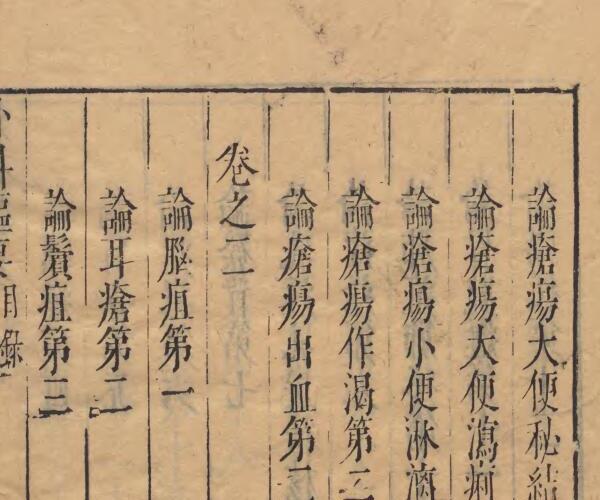 論瘡瘍大便秘結
論瘡瘍大便瀉痢
論瘡瘍小便淋漓
論瘡瘍作渴第二
論瘡瘍出血第二
卷之二
論腦疽第一
論耳瘡第二
論鬢疽第三
外科樞要目錄